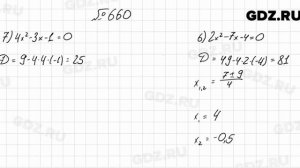 GDZ.RU
№660
7) 4x²-3x-1=0
D=9-4·4·(-1)=25
б) 2x²-7x-4=0
D=49-4·2·(-4)=81
x₁,₂=(7±9)/4
x₁=4
x₂=-0,5